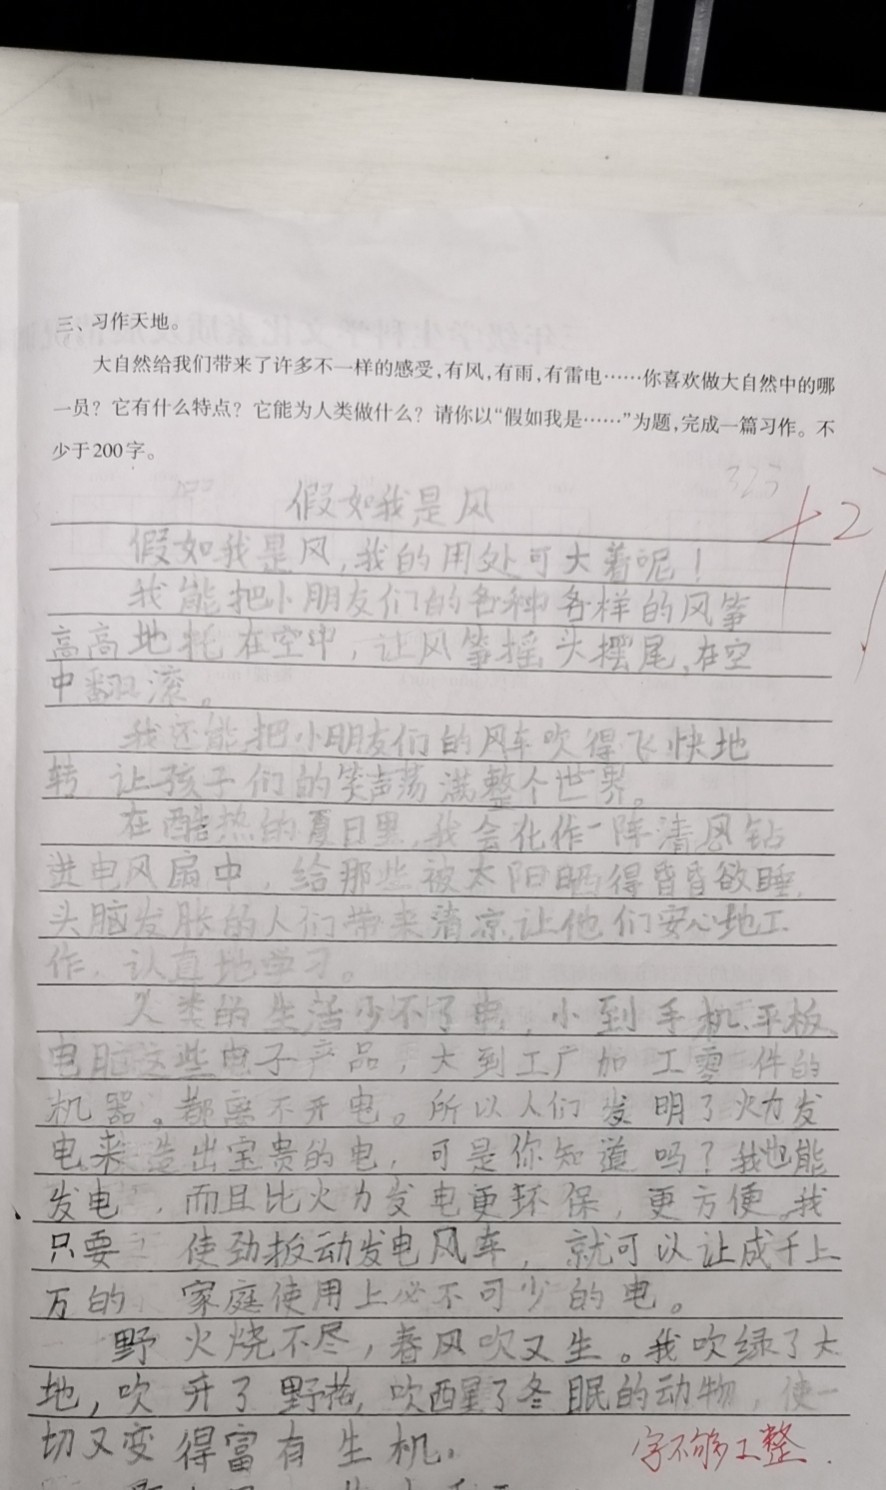 三、习作天地。
大自然给我们带来了许多不一样的感受,有风,有雨,有雷电……你喜欢做大自然中的哪
一员？它有什么特点？它能为人类做什么？请你以“假如我是……”为题,完成一篇习作。不
少于200字。
323
假如我是风
+2
假如我是风,我的用处可大着呢！
我能把小朋友们的各种各样的风筝
高高地托在空中，让风筝摇头摆尾,在空
中翻滚。
我还能把小朋友们的风车吹得飞快地
转 让孩子们的笑声荡满整个世界。
在酷热的夏日里,我会化作一阵清风钻
进电风扇中，给那些被太阳晒得昏昏欲睡,
头脑发胀的人们带来清凉,让他们安心地工
作、认真地学习。
人类的生活少不了电，小到手机、平板
电脑这些电子产品，大到工厂加工零件的
机器。都离不开电。所以人们发明了火力发
电来造出宝贵的电，可是你知道吗？我也能
发电，而且比火力发电更环保，更方便。我
只要 使劲扳动发电风车，就可以让成千上
万的 家庭使用上必不可少的电。
野火烧不尽，春风吹又生。我吹绿了大
地，吹开了野花，吹醒了冬眠的动物，使一
切又变得富有生机。
字不够工整.